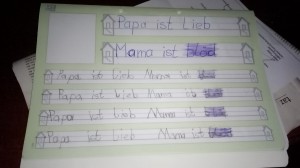 Papa ist Lieb
Mama ist
Papa ist Lieb Mama ist
Papa ist Lieb Mama ist
Papa ist Lieb Mama ist
Papa ist Lieb Mama ist